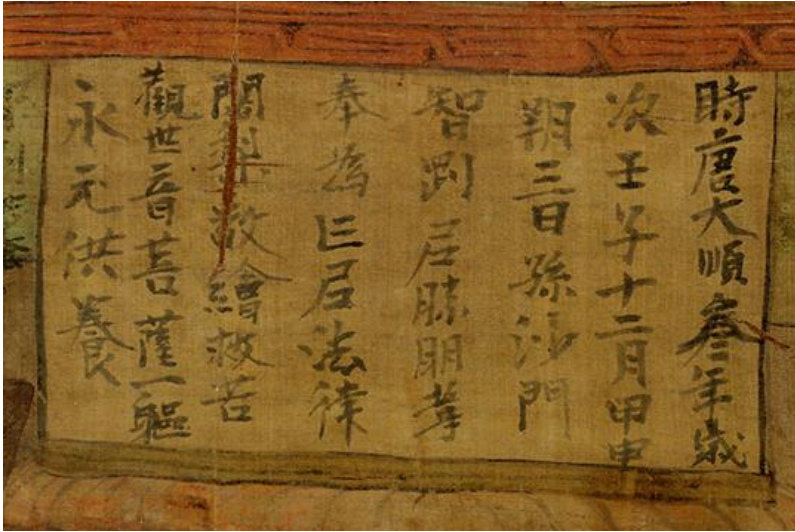 時唐大順叁年歲
次壬子十二月甲申
朔三日孫沙門
智剛尼勝明等
奉為亡尼法律
闍梨敬繪救苦
觀世音菩薩一軀
永充供養